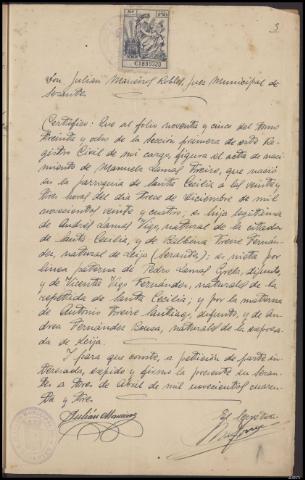 3
Don Julián Maneiros Robles, Juez Municipal de
Serantes
Certifico: Que al folio noventa y cinco del tomo
treinta y ocho de la sección primera de este Re-
gistro Civil de mi cargo figura el acta de naci-
miento de Manuela Lamas Freire, que nació
en la parroquia de Santa Cecilia a las veinte y
tres horas del día trece de Diciembre de mil
novecientos veinte y cuatro; es hija legítima
de Andrés Lamas Vigo, natural de la citada
de Santa Cecilia, y de Balbina Freire Fernán-
dez, natural de Leija (Serantes); es nieta por
línea paterna de Pedro Lamas, difunto,
y de Vicenta Vigo Fernández, naturales de la
repetida de Santa Cecilia; y por la materna
de Antonio Freire Santiago, difunto, y de An-
drea Fernández Bouza, naturales de la expresa-
da de Leija.
Y para que conste, a petición de parte in-
teresada, expido y firmo la presente en Seran-
tes a tres de Abril de mil novecientos cuaren-
ta y tres.
Julián Maneiros
El Secretario